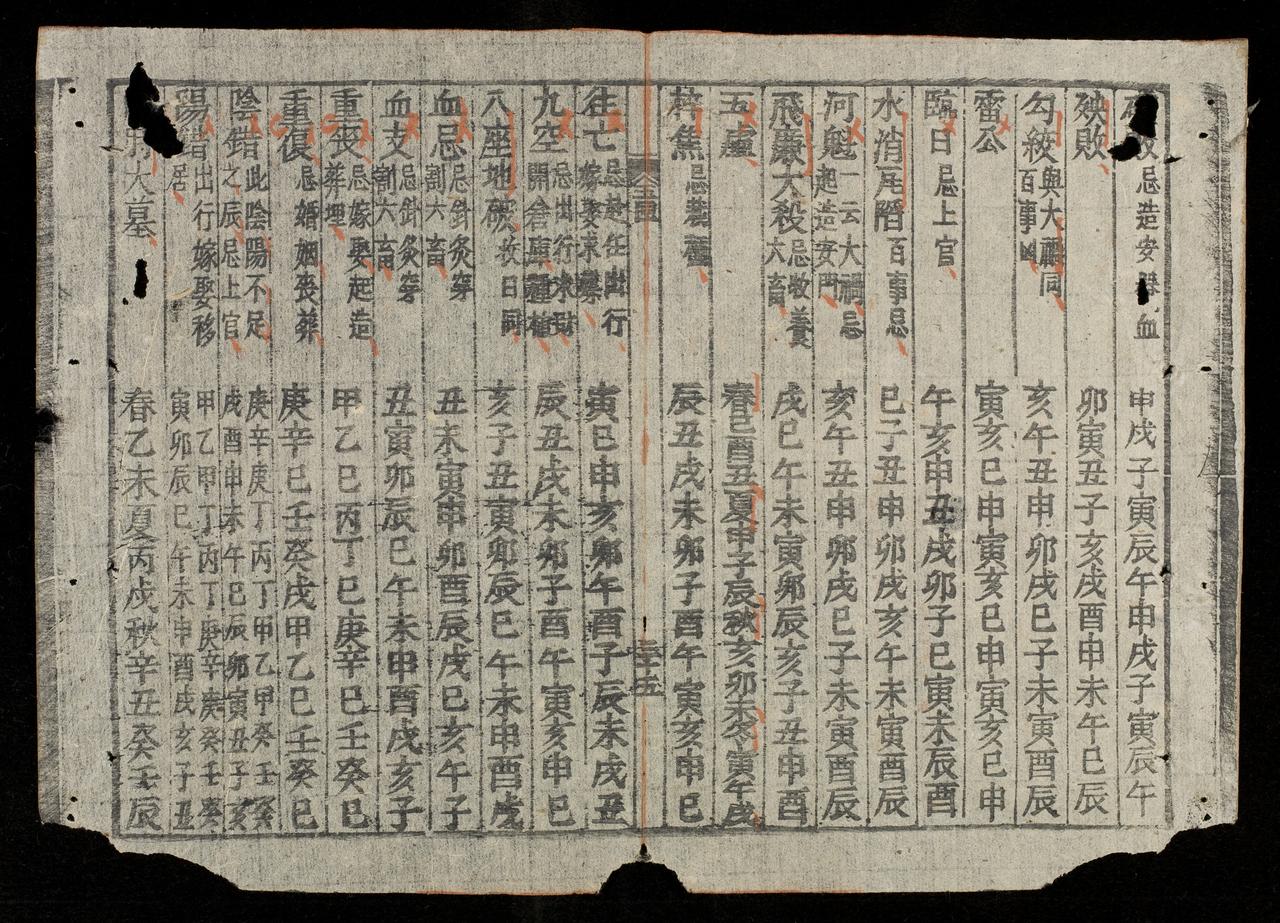 忌造安碓血 申戌子寅辰午申戌子寅辰午
殃敗 卯寅丑子亥戌酉申未午巳辰
勾絞 與大禍同百事凶 亥午丑申卯戌巳子未寅酉辰
雷公 寅亥巳申寅亥巳申寅亥巳申
臨日 忌上官 午亥申丑戌卯子巳寅未辰酉
水消瓦陷 百事忌 巳子丑申卯戌亥午未寅酉辰
河魁 一云大禍忌起造安門 亥午丑申卯戌巳子未寅酉辰
飛廉大殺 忌收養六畜 戌巳午未寅卯辰亥子丑申酉
五虛 春巳酉丑夏申子辰秋亥卯未冬寅午戌
焦 忌蓋種 辰丑戌未卯子酉午寅亥申巳
三十五
往亡 忌赴任出行嫁娶求 寅巳申亥卯午酉子辰未戌丑
九空 忌出行求財開倉庫種植 辰丑戌未卯子酉午寅亥申巳
八座地破 收日同 亥子丑寅卯辰巳午未申酉戌
血忌 忌針灸穿割六畜 丑未寅申卯酉辰戌巳亥午子
血支 忌針灸穿割六畜 丑寅卯辰巳午未申酉戌亥子
重喪 忌嫁娶起造葬埋 甲乙巳丙丁巳庚辛巳壬癸巳
重復 忌婚姻喪葬 庚辛巳壬癸戌甲乙巳壬癸巳
陰錯 此陰陽不足之辰忌上官 庚辛庚丁丙丁甲乙甲癸壬癸 戌酉申未午巳辰卯寅丑子亥
陽錯 出行嫁娶移居 甲乙甲丁丙丁庚辛庚癸壬癸 寅卯辰巳午未申酉戌亥子丑
大墓 春乙未夏丙戌秋辛丑癸壬辰